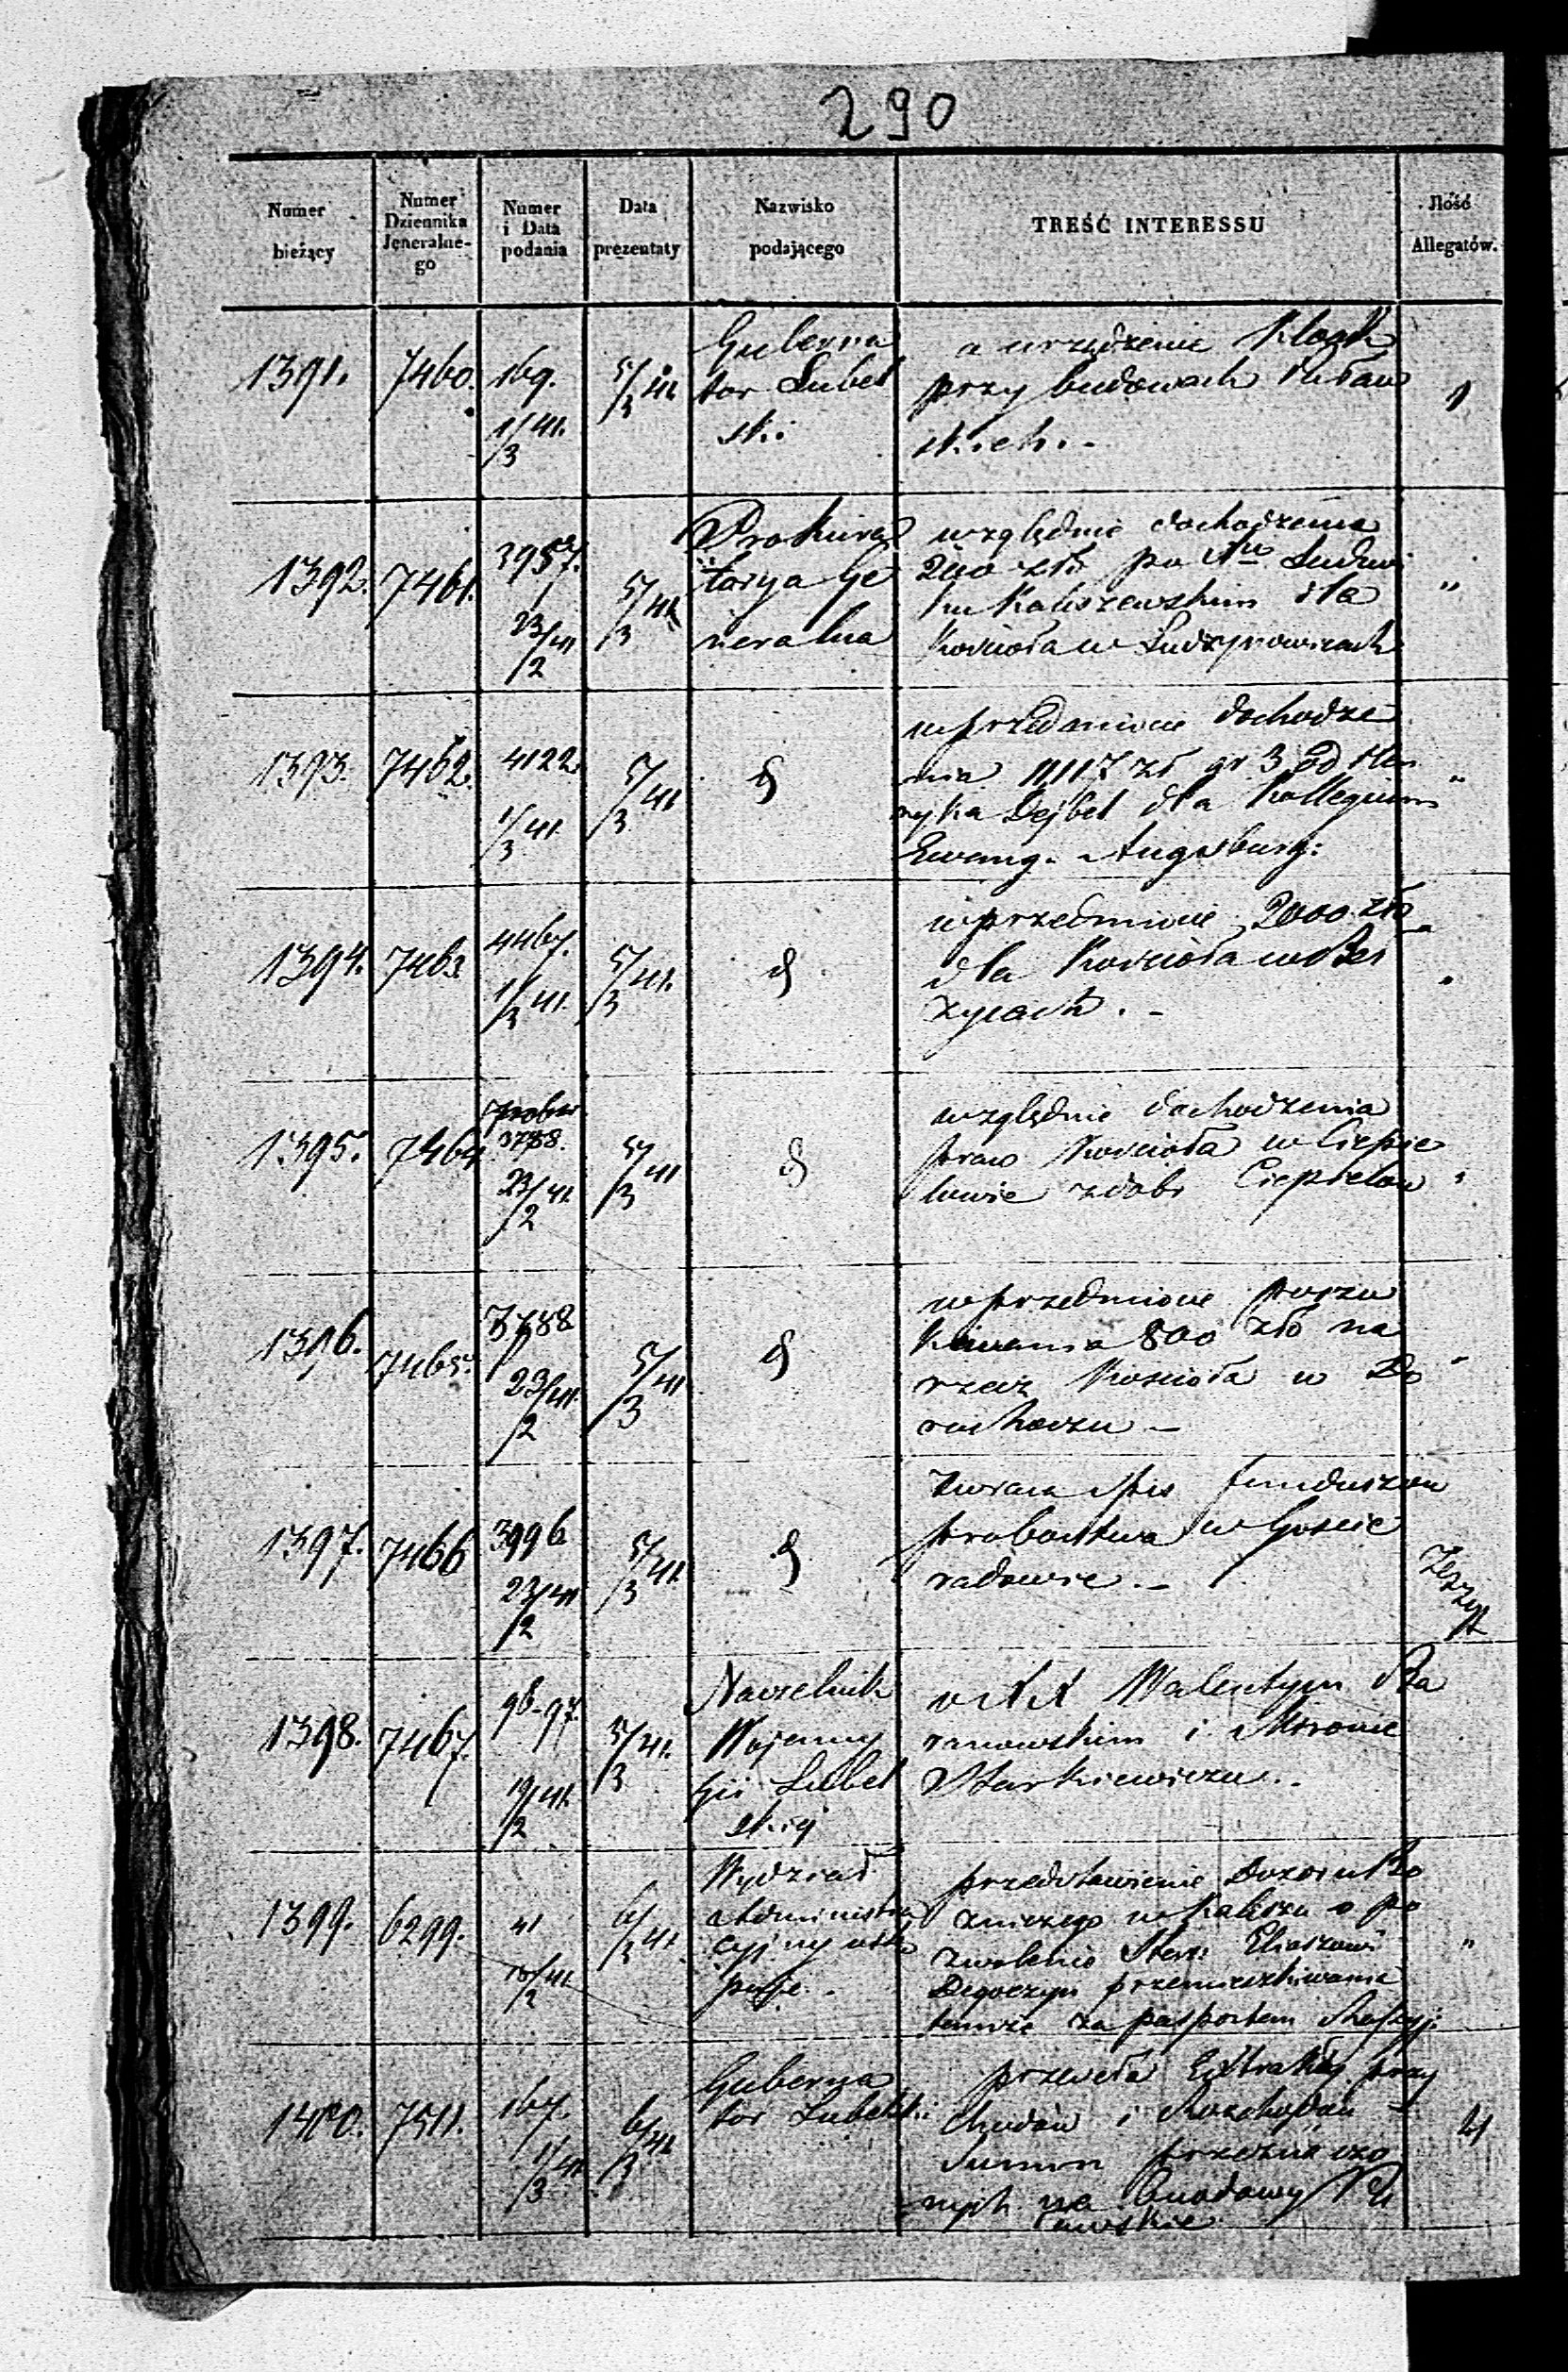 290
Numer bieżący
Numer Dziennika Jeneralnego
Numer i Data podania
Data prezentaty
Nazwisko podającego
TREŚĆ INTERESSU
Ilość Allegatów.
1391. 7460. 169. 1/3 41. 5/3 41.
Guberna
tor Lubel
ski
o urządzenie Kloak
przy budowach Puław
skich. -
1
1392. 7461. 3957. 23/2 41 5/3 41.
Prokura
torya Ge
neralna
względnie dochodzenia
200 złt po Ludwi
ku Kaliszewskim dla
Kościoła w
"
1393. 7462. 4122 1/3 41. 5/3 41
d
w przedmiocie dochodze
nia 11117 zł gr 3 od Hen
ryka Dejbel dla Kollegium
Ewang. Augsburg:
"
1394. 7463. 4467. 1/3 41. 5/3 41.
d
w przedmiocie 2000 złp
dla Kościoła w Beł
życach. -
"
1395. 7464 3788. 23/2 41. 5/3 41
d
względnie dochodzenia
praw Kościoła w Ciepie
lowie z dóbr Ciepielow
"
1396. 7465. 3788 23/2 41. 5/3 41
d
w przedmiocie poszu
kiwania 800 złp na
rzecz Kościoła w Do
rohoczu -
"
1397. 7466 3996 23/2 41 5/3 41.
d
zwraca Spis funduszów
probostwa w Goście
radowie. -
Zeszyt
1398. 7467. 96-97. 19/2 41. 5/3 41.
Naczelnik
Wojenny
Gii Lubel
skiej
o XX Walentym Ba
ranowskim i Mironie
Starkiewiczu. -
1399. 6299. 41 18/2 41. 6/3 41.
Wydział
Administra
cyjny
przedstawienie Dozoru Bo
żniczego w Kaliszu o po
zwolenie Star: Eliaszowi
przemieszkiwania
tamże za paszportem
"
1400. 7511. 167. 1/3 41 6/3 41.
Guberna
tor Lubelski
przesyła Extrakty przy
chodów i Rozchodów
Summ przeznaczo
nych na budowy Pu
ławskie
4